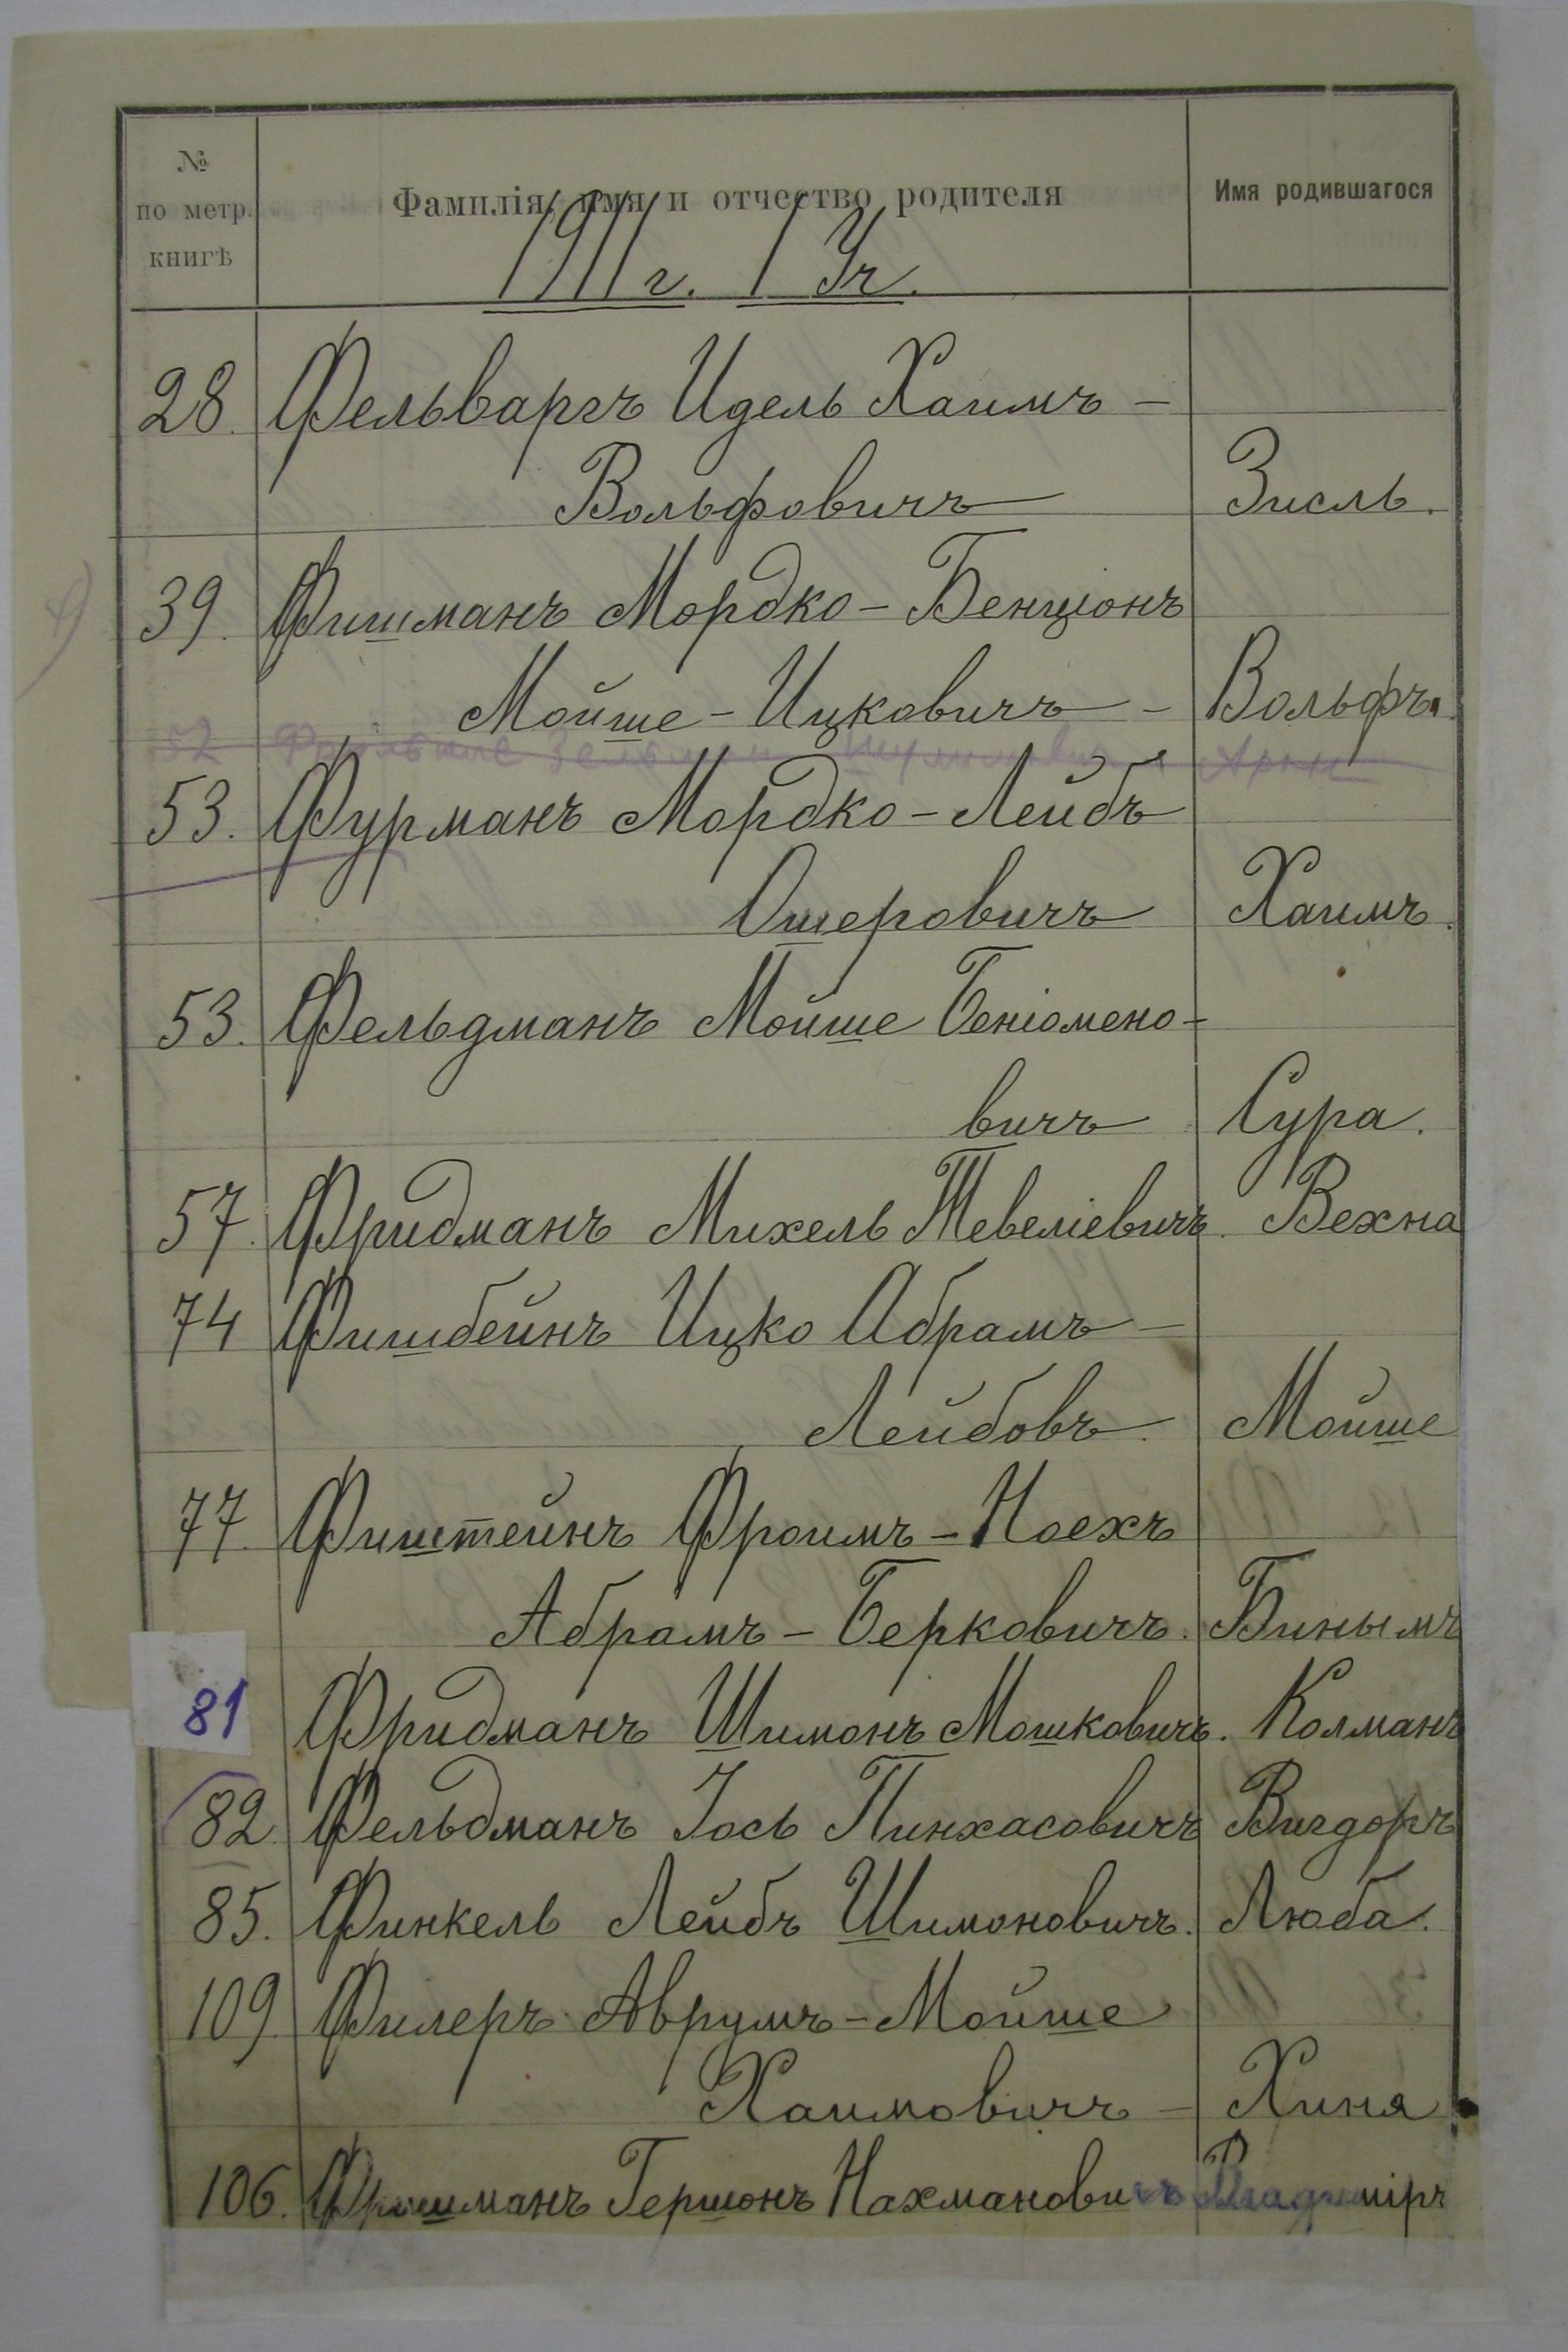 № по метр. книгѣ
Фамилія, имя и отчество родителя
Имя родившагося
1911 г. 1 Уч.
28. Фельваргъ Идель Хаимъ -
Вольфовичъ Зисль.
39. Фишманъ Мордко - Бенціонъ
Мойше - Ицковичъ - Вольфъ.
52
53. Фурманъ Мордко - Лейбъ
Ошеровичъ Хаимъ.
53. Фельдманъ Мойше Беніомено-
вичъ Сура.
57. Фридманъ Михель Тевеліевичъ. Вехна
74 Фишбейнъ Ицко Абрамъ -
Лейбовъ. Мойше
77. Фиштейнъ Фроимъ - Ноехъ
Абрамъ - Берковичъ. Бинымъ
81 Фридманъ Шимонъ Мошковичъ. Колманъ
82. Фельдманъ Іось Пинхасовичъ Вигдоръ
85. Финкель Лейбъ Шимоновичъ. Люба.
109. Филеръ Аврумъ - Мойше
Хаимовичъ - Хиня
106. Гершонъ Нахмановичъ Владиміръ